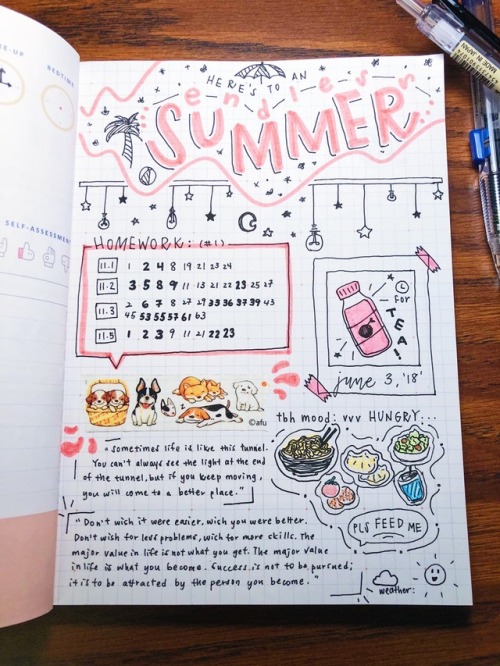 E-UP
BEDTIME
SELF-ASSESSMENT
HERE'S TO AN
endless
SUMMER
HOMEWORK: (#1)
11.1 1 2 4 8 19 21 23 24
11.2 3 5 8 9 11 13 21 22 23 25 27
11.3 2 6 7 8 27 29 33 36 37 39 43
45 53 55 57 61 63
11.5 1 2 3 9 11 21 22 23
for
TEA!
june 3, '18'
©afu
tbh mood: vvv HUNGRY...
"sometimes life is like this tunnel.
You can't always see the light at the end
of the tunnel, but if you keep moving,
you will come to a better place."
"Don't wish it were easier, wich you were better.
Don't wish for less problems, wich for more skills. The
major value in life is not what you get. The major value
in life is what you become. Success is not to be pursued;
it is to be attracted by the person you become."
PLS FEED ME
weather:
MADE IN JAPAN